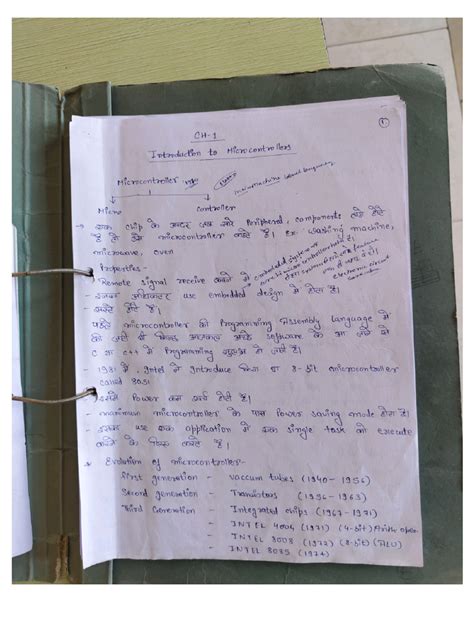 ①
CH-1
Introduction to Microcontrollers
Microcontroller
Micro controller
→ एक chip के अन्दर जब सारे Peripheral, components लगे होते
है तो उसे microcontroller कहते हैं। Ex. Washing machine,
microwave, oven
Properties-
- Remote signal receive करने में
- इसका अधिकतर use embedded design में होता है।
- सस्ते होते हैं।
- पहले microcontroller की Programming Assembly language में
की जाती थी software के आ जाने से
C या C++ में Programming होने लगी है।
- 1981 में, Intel ने Introduce किया था 8-bit microcontroller
called 8051
- इसमें Power कम खर्च होती है।
- maximum microcontroller के पास Power saving mode होता है।
- इसका use एक application में एक single task को execute
करने के लिए करते हैं।
* Evolution of microcontroller-
First generation - vaccum tubes (1940-1956)
Second generation - Transistors (1956-1963)
Third Generation - Integrated chips (1967-1971)
- INTEL 4004 (1971) (4-bit)
- INTEL 8008 (1972) (8-bit) (ALU)
- INTEL 8085 (1974)